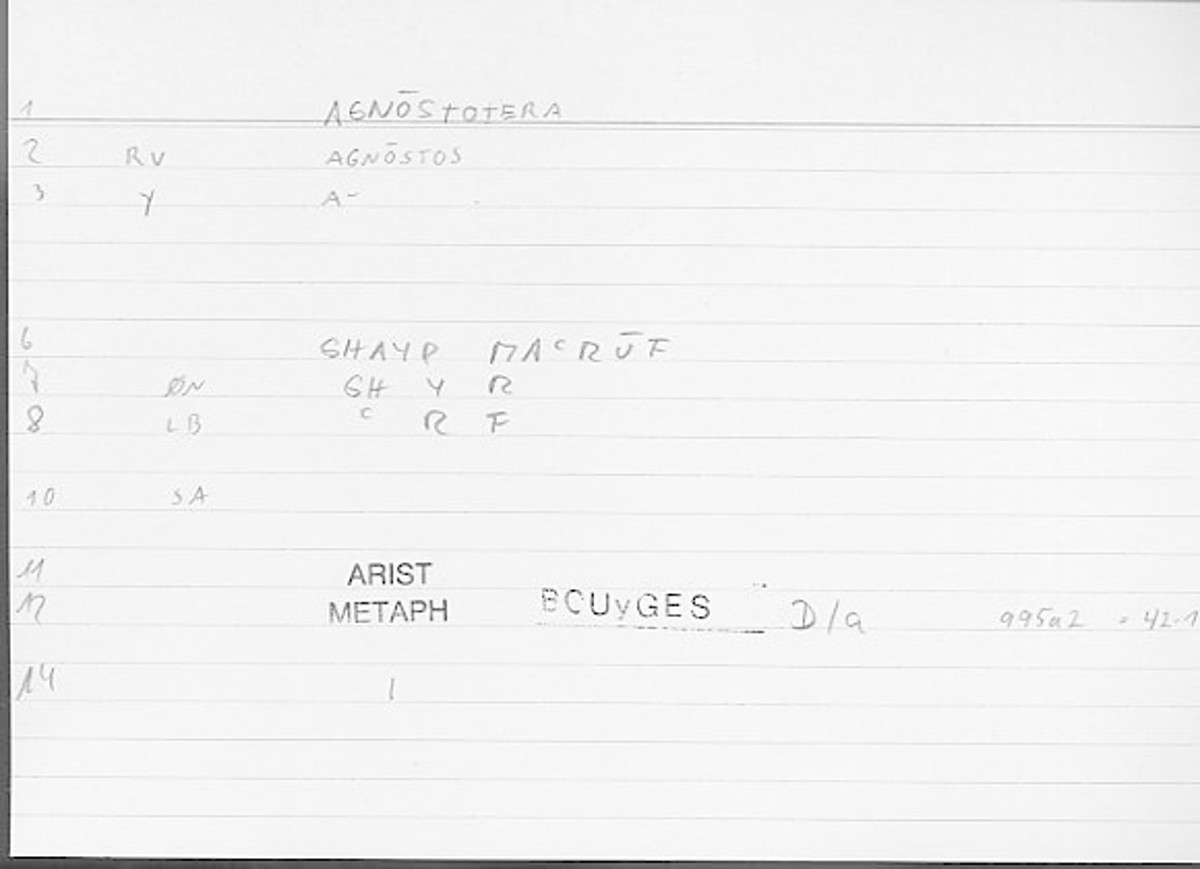 1 AGNŌSTOTERA
2 RV AGNŌSTOS
3 Y A-
6 GHAYR MAᶜRŪF
7 ØN GH Y R
8 LB ᶜ R F
10 SA
11 ARIST
12 METAPH BCUyGES D/a 995a2 = 42-1
14 1